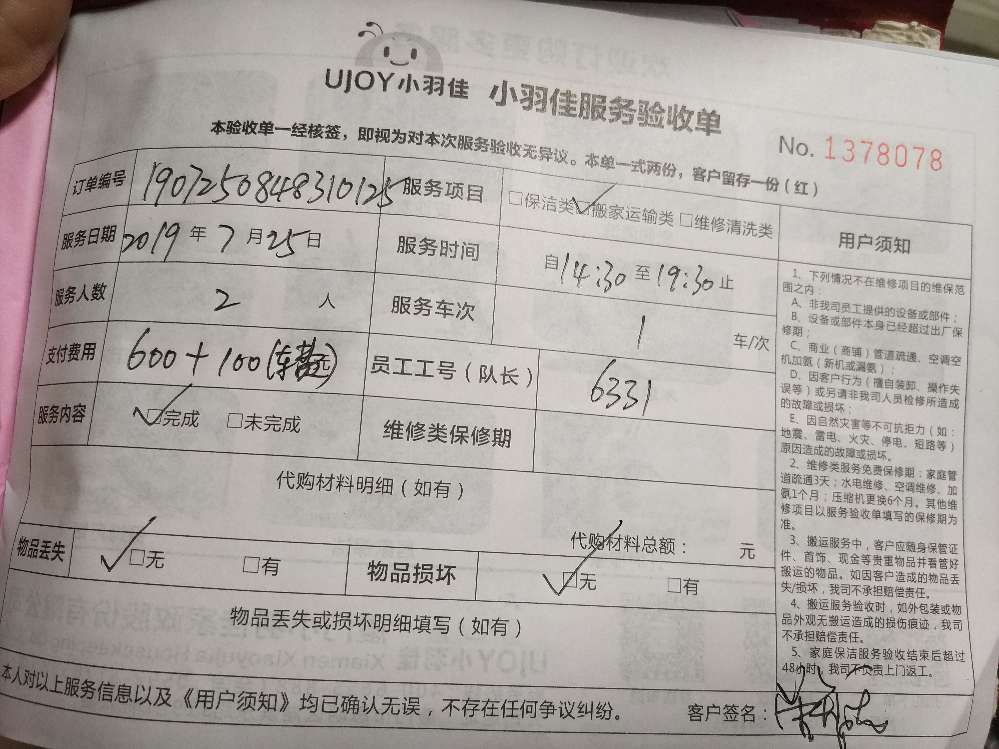 UJOY小羽佳 小羽佳服务验收单
本验收单一经核签，即视为对本次服务验收无异议。本单一式两份，客户留存一份（红）
No. 1378078
订单编号 1907250848310125 服务项目 □保洁类 ☑搬家运输类 □维修清洗类
服务日期 2019年7月25日 服务时间 自14:30至19:30止
服务人数 2 人 服务车次 1 车/次
支付费用 600+100(车 元 员工工号（队长） 6331
服务内容 ☑完成 □未完成 维修类保修期
代购材料明细（如有）
代购材料总额： 元
物品丢失 ☑无 □有 物品损坏 ☑无 □有
物品丢失或损坏明细填写（如有）
本人对以上服务信息以及《用户须知》均已确认无误，不存在任何争议纠纷。 客户签名：
用户须知
1、下列情况不在维修项目的维保范
围之内：
A、非我司员工提供的设备或部件；
B、设备或部件本身已经超过出厂保
修期；
C、商业（商铺）管道疏通、空调空
机加氨（新机或漏氨）；
D、因客户行为（擅自装卸、操作失
误等）或另请非我司人员检修所造成
的故障或损坏；
E、因自然灾害等不可抗拒力（如：
地震、雷电、火灾、停电、短路等）
原因造成的故障或损坏。
2、维修类服务免费保修期：家庭管
道疏通3天；水电维修、空调维修、加
氨1个月；压缩机更换6个月。其他维
修项目以服务验收单填写的保修期为
准。
3、搬运服务中，客户应随身保管证
件、首饰、现金等贵重物品并看管好
搬运的物品。如因客户造成的物品丢
失/损坏，我司不承担赔偿责任。
4、搬运服务验收时，如外包装或物
品外观无搬运造成的损伤痕迹，我司
不承担赔偿责任。
5、家庭保洁服务验收结束后超过
48小时，我司不负责上门返工。